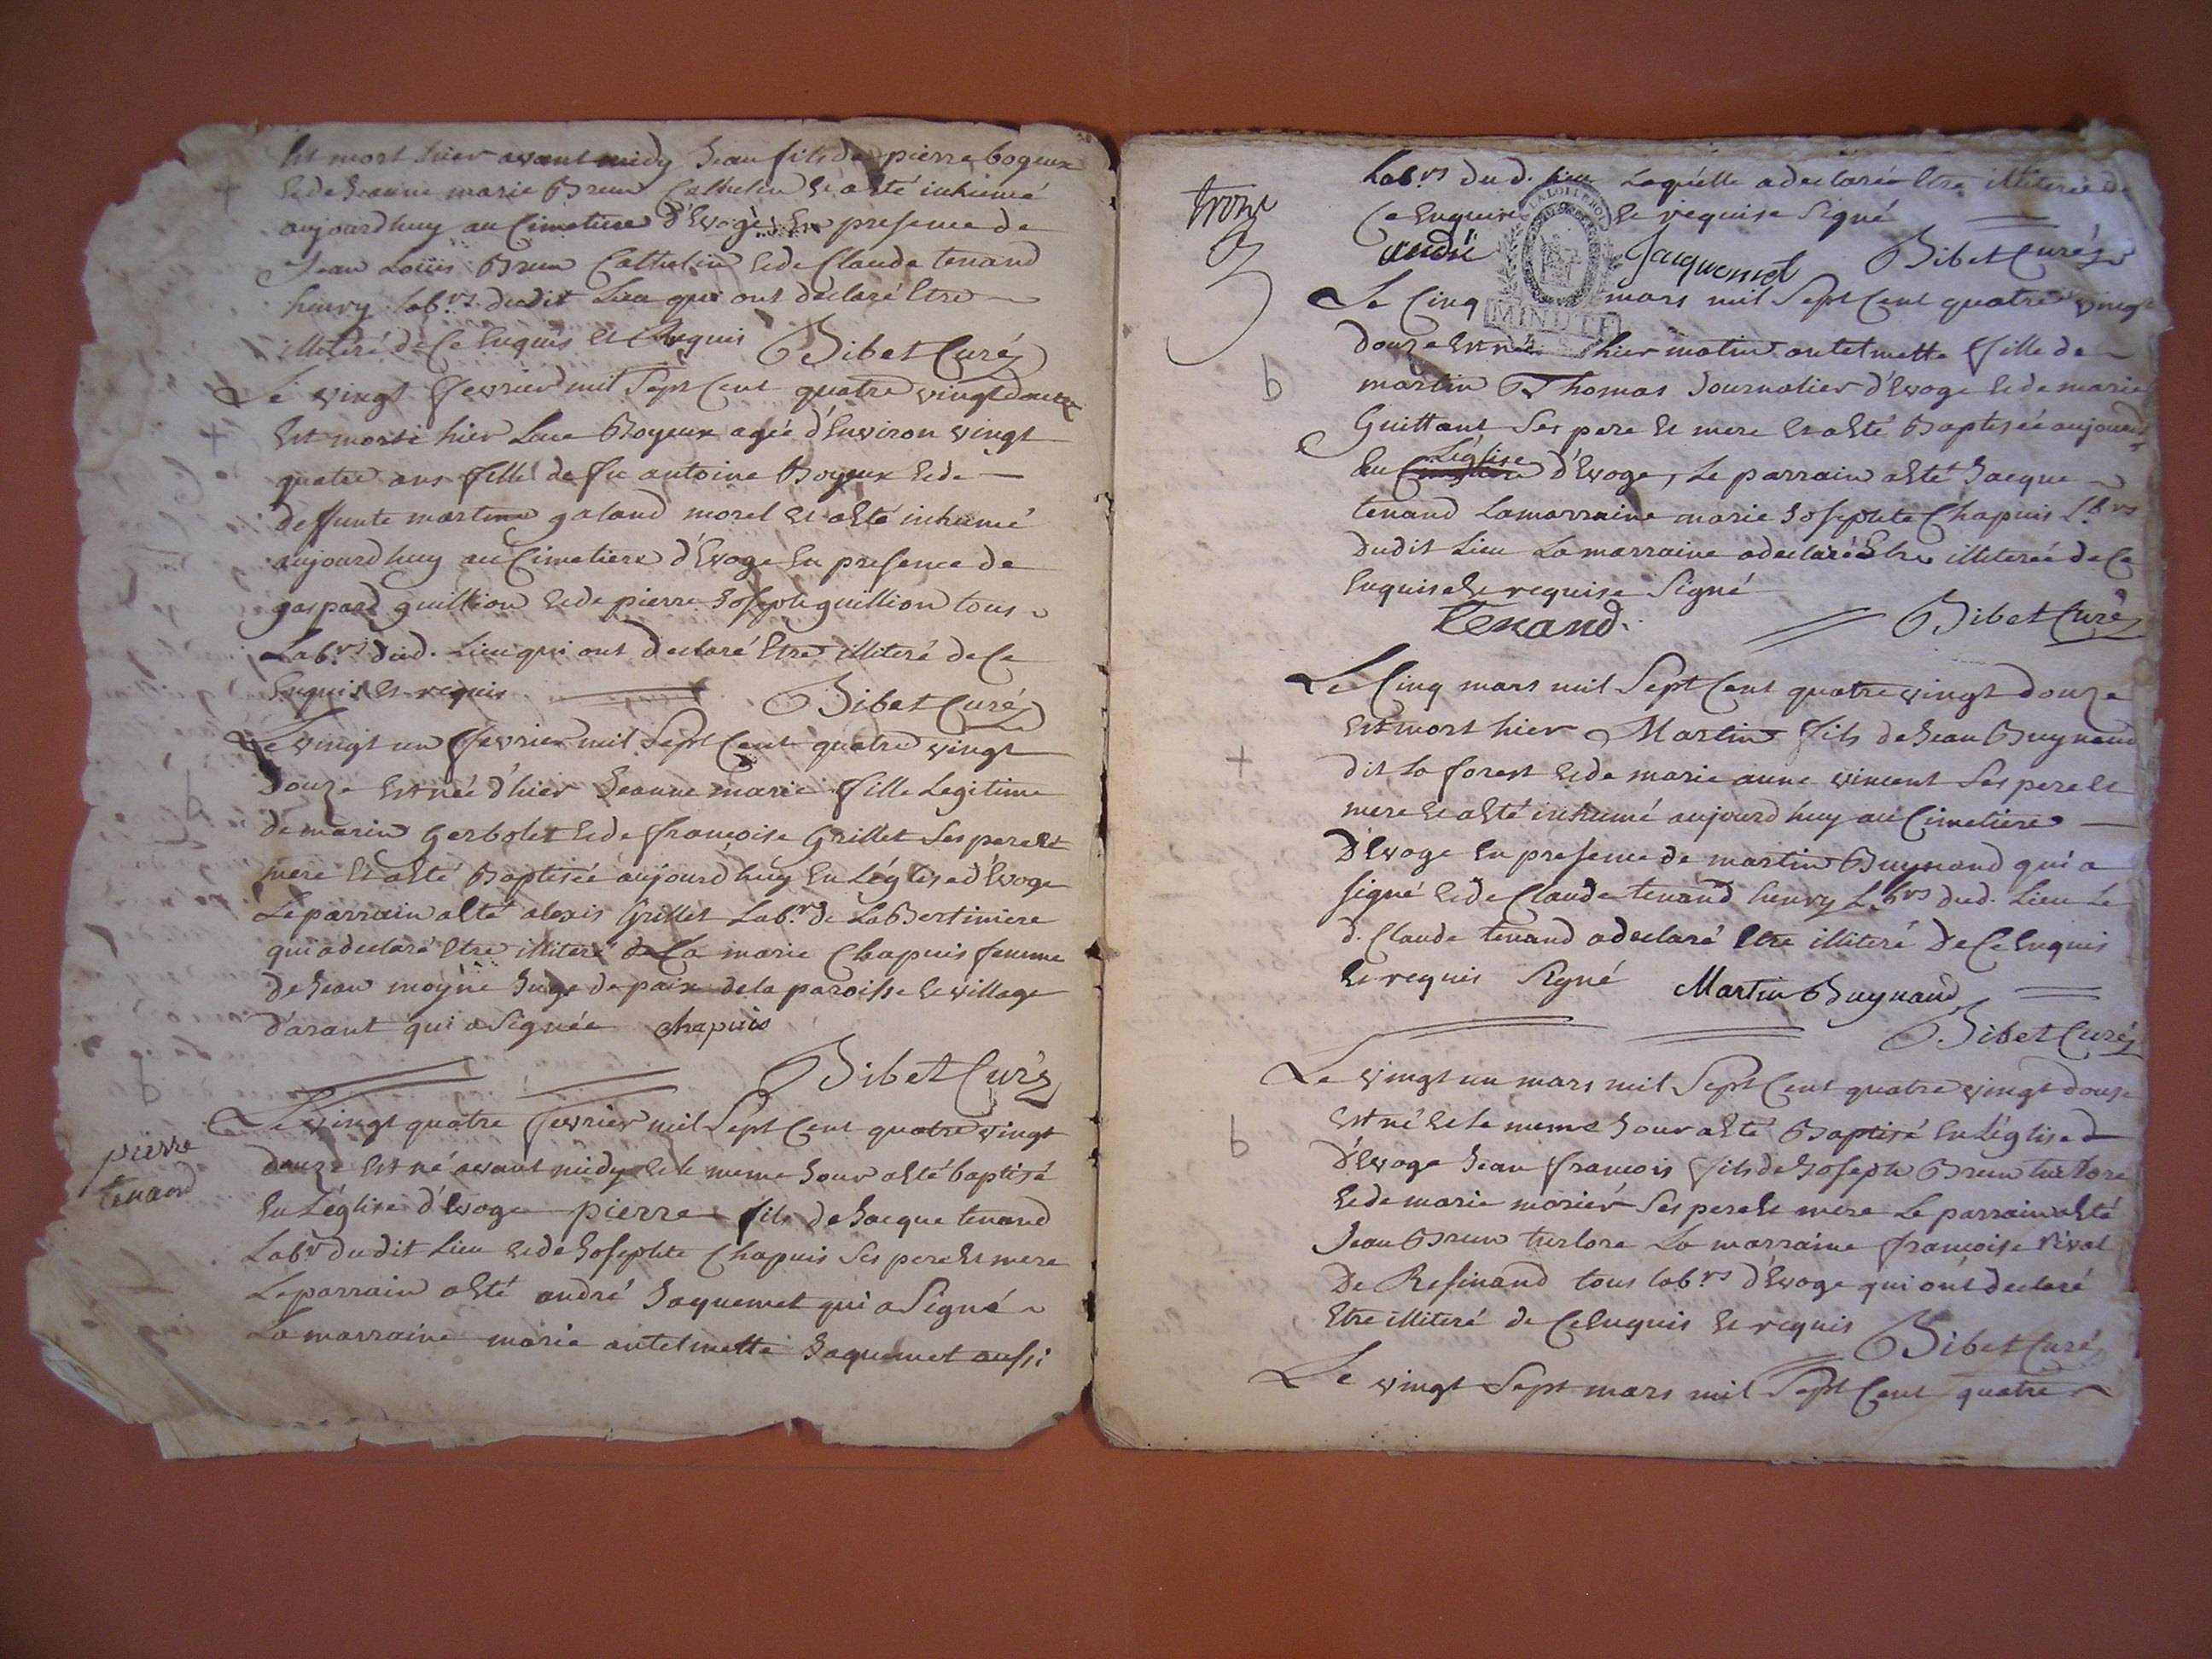 Est mort hier avant midy Jean fils de pierre bogeux
et de Jeanne marie Brun Cathelin et a été inhumé
aujourdhuy au Cimetiere d'Evoge En presence de
Jean Loüis Brun Cathelin et de Claude tenand
henry lab.rs dudit Lieu qui ont déclaré Etre
illiteré de Ce Enquis et Requis Bibet Curé
Le vingt fevrier mil Sept Cent quatre vingt douze
Est morte hier Boyeux agée d'Environ vingt
quatre ans fille de fu antoine Boyeux et de
deffunte martine galand morel et a été inhumé
aujourdhuy au Cimetiere d'Evoge En presence de
gaspard guillion et de pierre Joseph guillion tous
Lab.rs dud. Lieu qui ont declaré Etre illiteré de Ce
Enquis et requis Bibet Curé
Le vingt un fevrier mil Sept Cent quatre vingt
Douze Est née d'hier Jeanne marie fille Legitime
de marin gerbolet et de françoise Grillet Ses pere et
mere Et a été Baptisée aujourdhuy En Léglise d'Evoge
Le parrain a été alexis Grillet Lab.r de La Bertiniere
qui a declaré Etre illiteré La marie Chapuis femme
de Jean moyne Juge de paix de la paroisse et village
d'arant qui a Signée chapuis
Bibet Curé
Le vingt quatre fevrier mil Sept Cent quatre vingt
douze Est né avant midy et le meme Jour a été baptisé
En Léglise d'Evoge pierre fils de Jacque tenand
Lab.r dudit Lieu et de Josephte Chapuis Ses pere et mere
Le parrain a été andré Jaquemet qui a Signé
La marraine marie antelmette Jaquemet aussi
pierre
tenand
treize
Lab.rs du d. Lieu Laquelle a declarée Etre illiterée de
Ce Enquise et requise Signé
LA LOI LE ROI
MINUTE
andré Jacquemet Bibet Curé
Le Cinq mars mil Sept Cent quatre vingt
douze Est née hier matin antelmette fille de
martin Thomas Journalier d'Evoge et de marie
Guittant Ses pere et mere et a été Baptisée aujourd
Léglise
En d'Evoge, Le parrain a été Jacque
tenand La marraine marie Josephte Chapuis L.brs
dudit Lieu La marraine a declaré Etre illiterée de Ce
Enquise et requise Signé
tenand. Bibet Curé
Le Cinq mars mil Sept Cent quatre vingt douze
Est mort hier Martin fils de Jean Buynand
dit la forest et de marie anne vincent Ses pere et
mere et a été inhumé aujourdhuy au Cimetiere
D'Evoge En presence de martin Buynand qui a
signé et de Claude tenand henry L.brs dud. Lieu Le
d. Claude tenand a declaré Etre illiteré De Ce Enquis
et requis Signé Martin Buynand
Bibet Curé
Le vingt un mars mil Sept Cent quatre vingt douze
Est né et le meme Jour a été Baptisé En Léglise
d'Evoge Jean françois fils de Joseph Brun turlore
et de marie morier Ses pere et mere Le parrain a été
Jean Brun turlore La marraine françoise
De Resinand tous lab.rs d'Evoge qui ont declaré
Etre illiteré de Ce Enquis et requis Bibet Curé
Le vingt Sept mars mil Sept Cent quatre
b
b